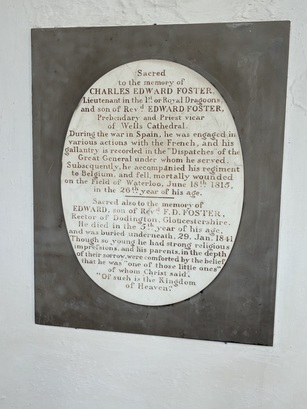 Sacred
to the memory of
CHARLES EDWARD FOSTER,
Lieutenant in the 1st or Royal Dragoons,
and son of Revd EDWARD FOSTER,
Prebendary and Priest vicar
of Wells Cathedral.
During the war in Spain, he was engaged in
various actions with the French, and his
gallantry is recorded in the "Dispatches" of the
Great General under whom he served.
Subsequently, he accompanied his regiment
to Belgium, and fell, mortally wounded
on the Field of Waterloo, June 18th 1815,
in the 26th year of his age.
Sacred also to the memory of
EDWARD, son of Revd F. D. FOSTER,
Rector of Dodington, Gloucestershire.
He died in the 5th year of his age,
and was buried underneath, 29. Jan. 1841
Though so young he had strong religious
impressions, and his parents, in the depth
of their sorrow, were comforted by the belief
that he was "one of those little ones"
of whom Christ said,
"Of such is the Kingdom
of Heaven."